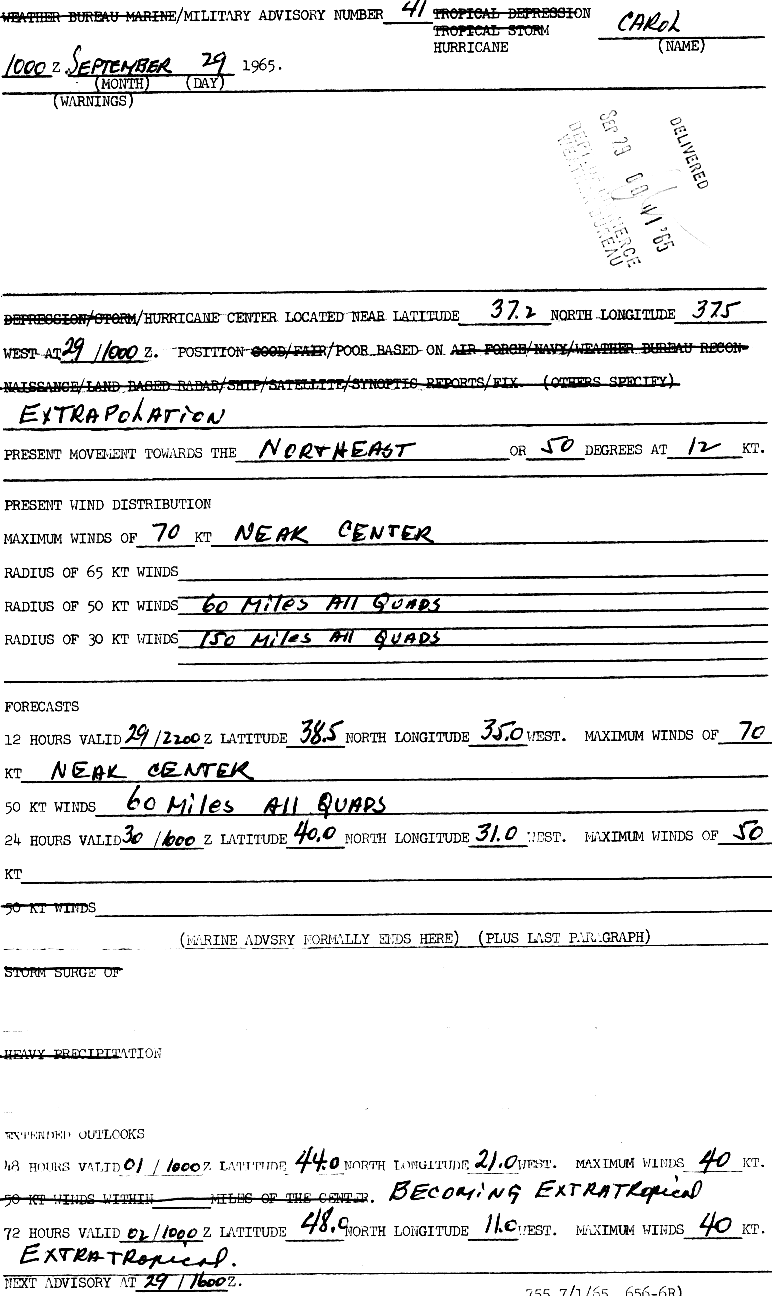 WEATHER BUREAU MARINE/MILITARY ADVISORY NUMBER 41 TROPICAL DEPRESSION CAROL
TROPICAL STORM
HURRICANE (NAME)
1000 Z SEPTEMBER 29 1965.
(MONTH) (DAY)
(WARNINGS)
DELIVERED
SEP 29 '65
WEATHER BUREAU
DEPRESSION/STORM/HURRICANE CENTER LOCATED NEAR LATITUDE 37.2 NORTH LONGITUDE 37.5
WEST AT 29/1000 Z. POSITION GOOD/FAIR/POOR BASED ON AIR FORCE/NAVY/WEATHER BUREAU RECON-
NAISSANCE/LAND BASED RADAR/SHIP/SATELLITE/SYNOPTIC REPORTS/FIX. (OTHERS SPECIFY)
EXTRAPOLATION
PRESENT MOVEMENT TOWARDS THE NORTHEAST OR 50 DEGREES AT 12 KT.
PRESENT WIND DISTRIBUTION
MAXIMUM WINDS OF 70 KT NEAR CENTER
RADIUS OF 65 KT WINDS
RADIUS OF 50 KT WINDS 60 Miles All QUADS
RADIUS OF 30 KT WINDS 150 Miles All QUADS
FORECASTS
12 HOURS VALID 29/2200 Z LATITUDE 38.5 NORTH LONGITUDE 35.0 WEST. MAXIMUM WINDS OF 70
KT NEAR CENTER
50 KT WINDS 60 Miles All QUADS
24 HOURS VALID 30/1000 Z LATITUDE 40.0 NORTH LONGITUDE 31.0 WEST. MAXIMUM WINDS OF 50
KT
50 KT WINDS
(MARINE ADVSRY NORMALLY ENDS HERE) (PLUS LAST PARAGRAPH)
STORM SURGE OF
HEAVY PRECIPITATION
EXTENDED OUTLOOKS
48 HOURS VALID 01/1000 Z LATITUDE 44.0 NORTH LONGITUDE 21.0 WEST. MAXIMUM WINDS 40 KT.
50 KT WINDS WITHIN MILES OF THE CENTER. BECOMING EXTRATROPICAL
72 HOURS VALID 02/1000 Z LATITUDE 48.0 NORTH LONGITUDE 11.0 WEST. MAXIMUM WINDS 40 KT.
EXTRATROPICAL.
NEXT ADVISORY AT 29/1600 Z.
755 7/1/65 656-6R)